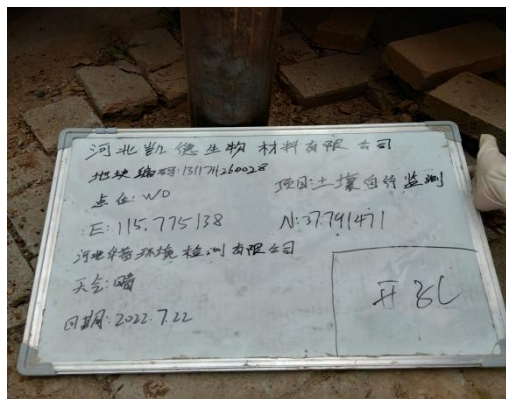 河北凯德生物材料有限公司
地块编码:1311711260028
项目:土壤自行监测
点位:W0
E:115.775138
N:37.791471
河北华普环境检测有限公司
天气:晴
开孔
日期:2022.7.22